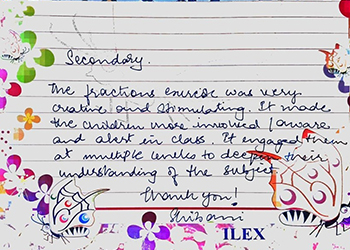 Secondary.
The fractions exercise was very
creative and stimulating. It made
the children more involved / aware
and alert in class. It engaged them
at multiple levels to deepen their
understanding of the subject.
Thank you!
Shibani
ILEX